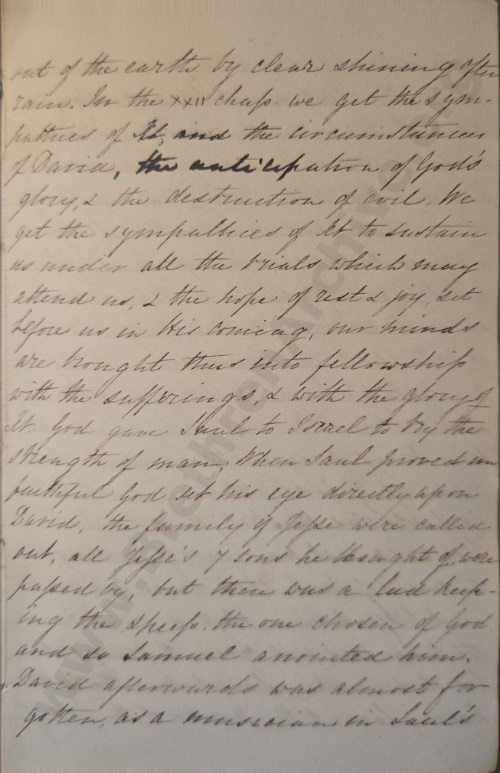 out of the earth by clear shining after
rain. In the XXII chap. we get the sym-
pathies of Xt, and the circumstances
of David, the anticipation of God's
glory, & the destruction of evil. We
get the sympathies of Xt to sustain
us under all the trials which may
attend us, & the hope of rest & joy, set
before us in His coming, our minds
are brought thus into fellowship
with the sufferings, & with the glory of
Xt. God gave Saul to Israel to try the
strength of man. When Saul proved un
faithful God set his eye directly upon
David, the family of Jesse were called
out, all Jesse's 7 sons he thought of, were
passed by, but there was a lad keep-
ing the sheep. the one chosen of God
and so Samuel anointed him.
David afterwards was almost for
gotten, as a musician in Saul's